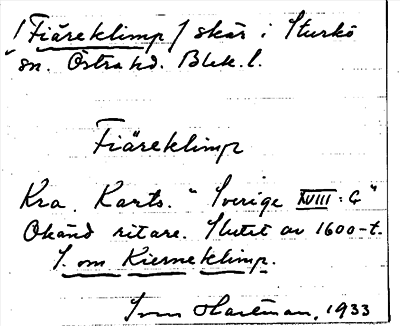 /Fiäreklimp/ skär i Sturkö
sn. Östra hd. Blek. l.
Fiäreklimp
Kra. Karts. "Sverige XVIII: G"
Okänd ritare. Slutet av 1600-t.
S. om Kierneklimp.
Sven Hartman, 1933